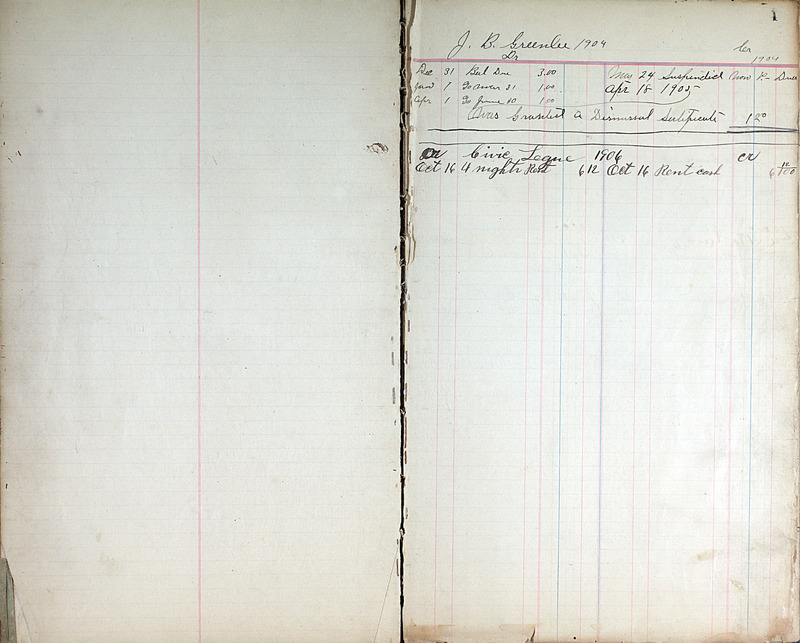 1
J. B. Greenlee 1904
Dr
Cr
1904
Dec 31 Bal Due 3.00 May 24 Suspended from K- Dues
Jan 1 To Mar 31 1.00 Apr 18 1905
Apr 1 To June 30 1.00
Was Granted a Dismissal Certificate 1.00
Dr Civic Legue 1906 cr
Oct 16 4 nights Rent 6 12 Oct 16 Rent cash 6 12/100